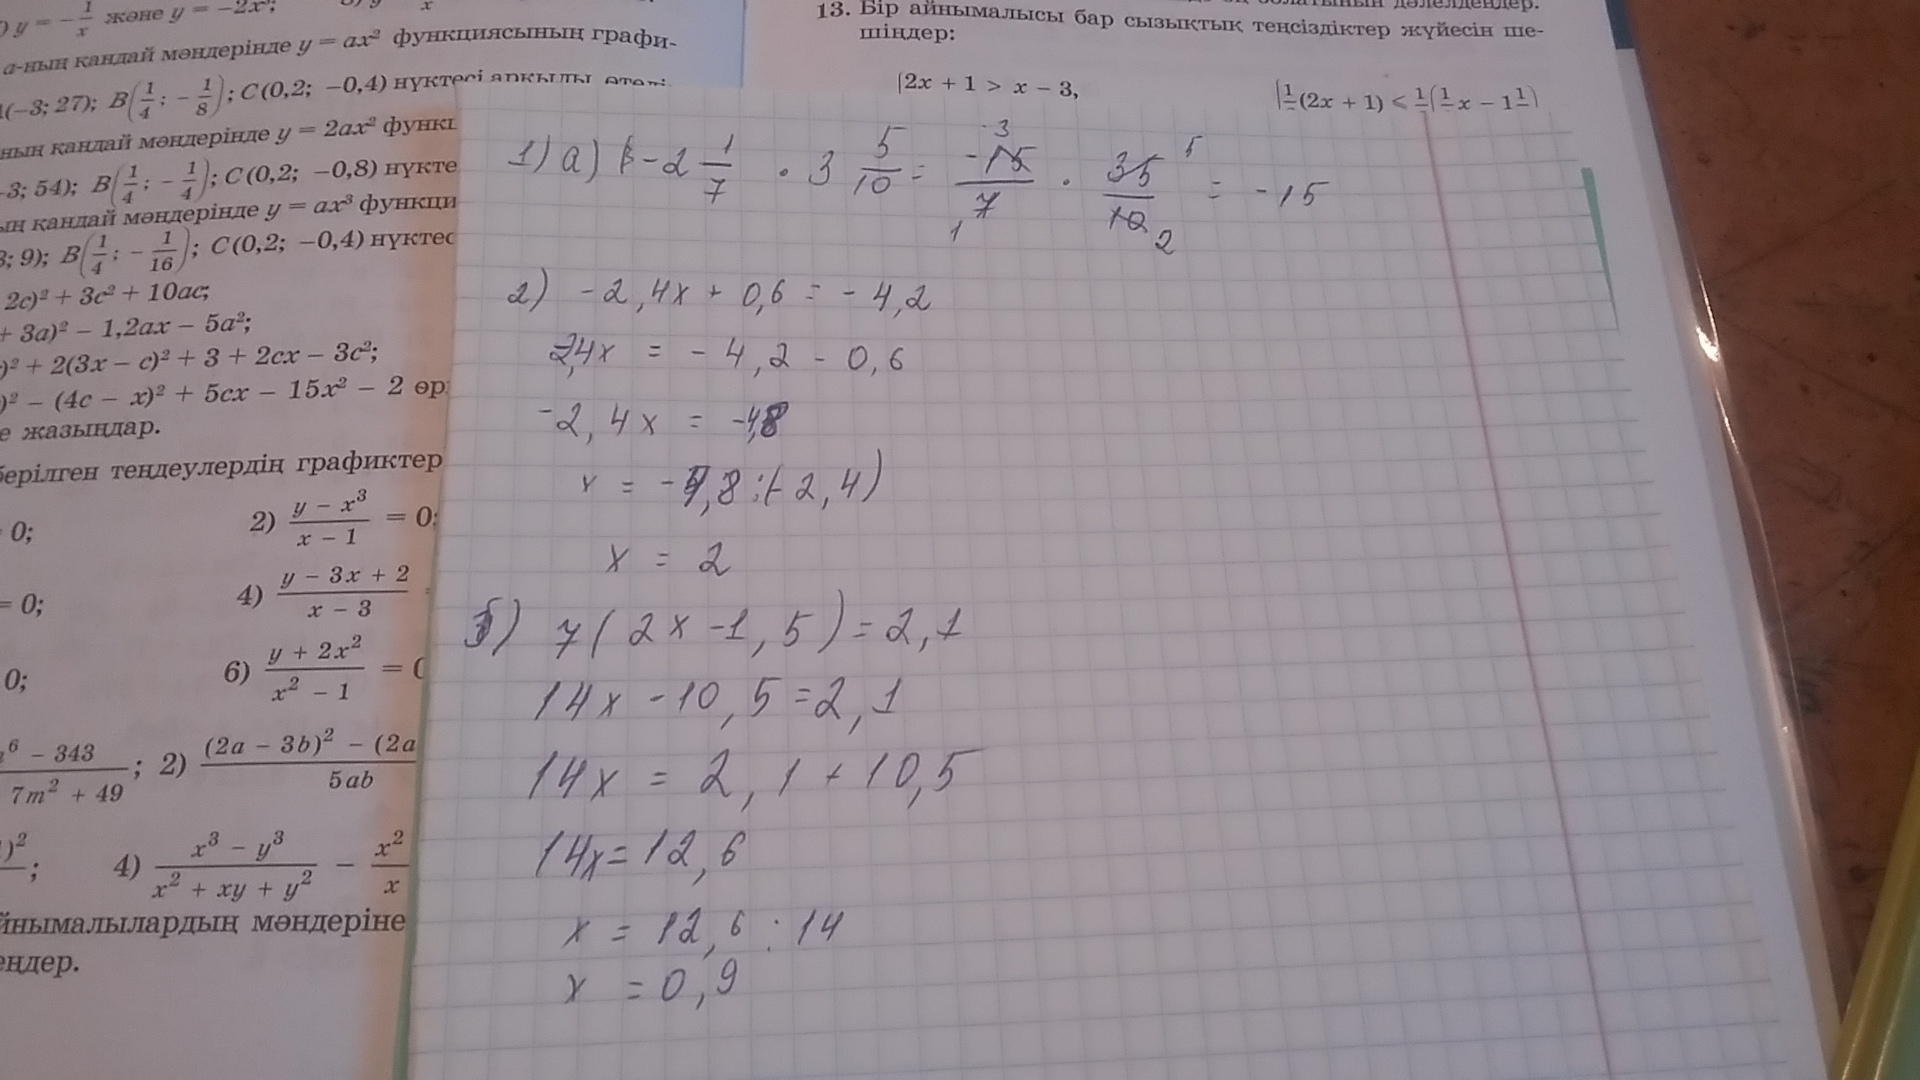 y = − 1/x және y = −2x³;
а-ның қандай мәндерінде y = ax² функциясының графи-
(−3; 27); B(1/4; −1/8); C(0,2; −0,4) нүктесі арқылы өтеді
ның қандай мәндерінде y = 2ax²
−3; 54); B(1/4; −1/4); C(0,2; −0,8)
ың қандай мәндерінде y = ax³
3; 9); B(1/4; −1/16); C(0,2; −0,4)
2c)² + 3c² + 10ac;
+ 3a)² − 1,2ax − 5a²;
)² + 2(3x − c)² + 3 + 2cx − 3c²;
)² − (4c − x)² + 5cx − 15x² − 2
е жазыңдар.
берілген теңдеулердің графиктер
0;
2) (y − x³)/(x − 1) = 0;
= 0;
4) (y − 3x + 2)/(x − 3)
0;
6) (y + 2x²)/(x² − 1) = 0
⁶ − 343
7m² + 49
; 2) (2a − 3b)² − (2a
5ab
)²
;
4) (x³ − y³)/(x² + xy + y²) − x²/x
йнымалылардың мәндеріне
ңдер.
13. Бір айнымалысы бар сызықтық теңсіздіктер жүйесін ше-
шіңдер:
2x + 1 > x − 3,
(2x + 1) ⩽
1) а) −2 1/7 · 3 5/10 = −15/7 · 35/10 = −15
2) −2,4x + 0,6 = −4,2
2,4x = −4,2 − 0,6
−2,4x = −4,8
x = −4,8 : (−2,4)
x = 2
б) 7(2x − 1,5) = 2,1
14x − 10,5 = 2,1
14x = 2,1 + 10,5
14x = 12,6
x = 12,6 : 14
x = 0,9